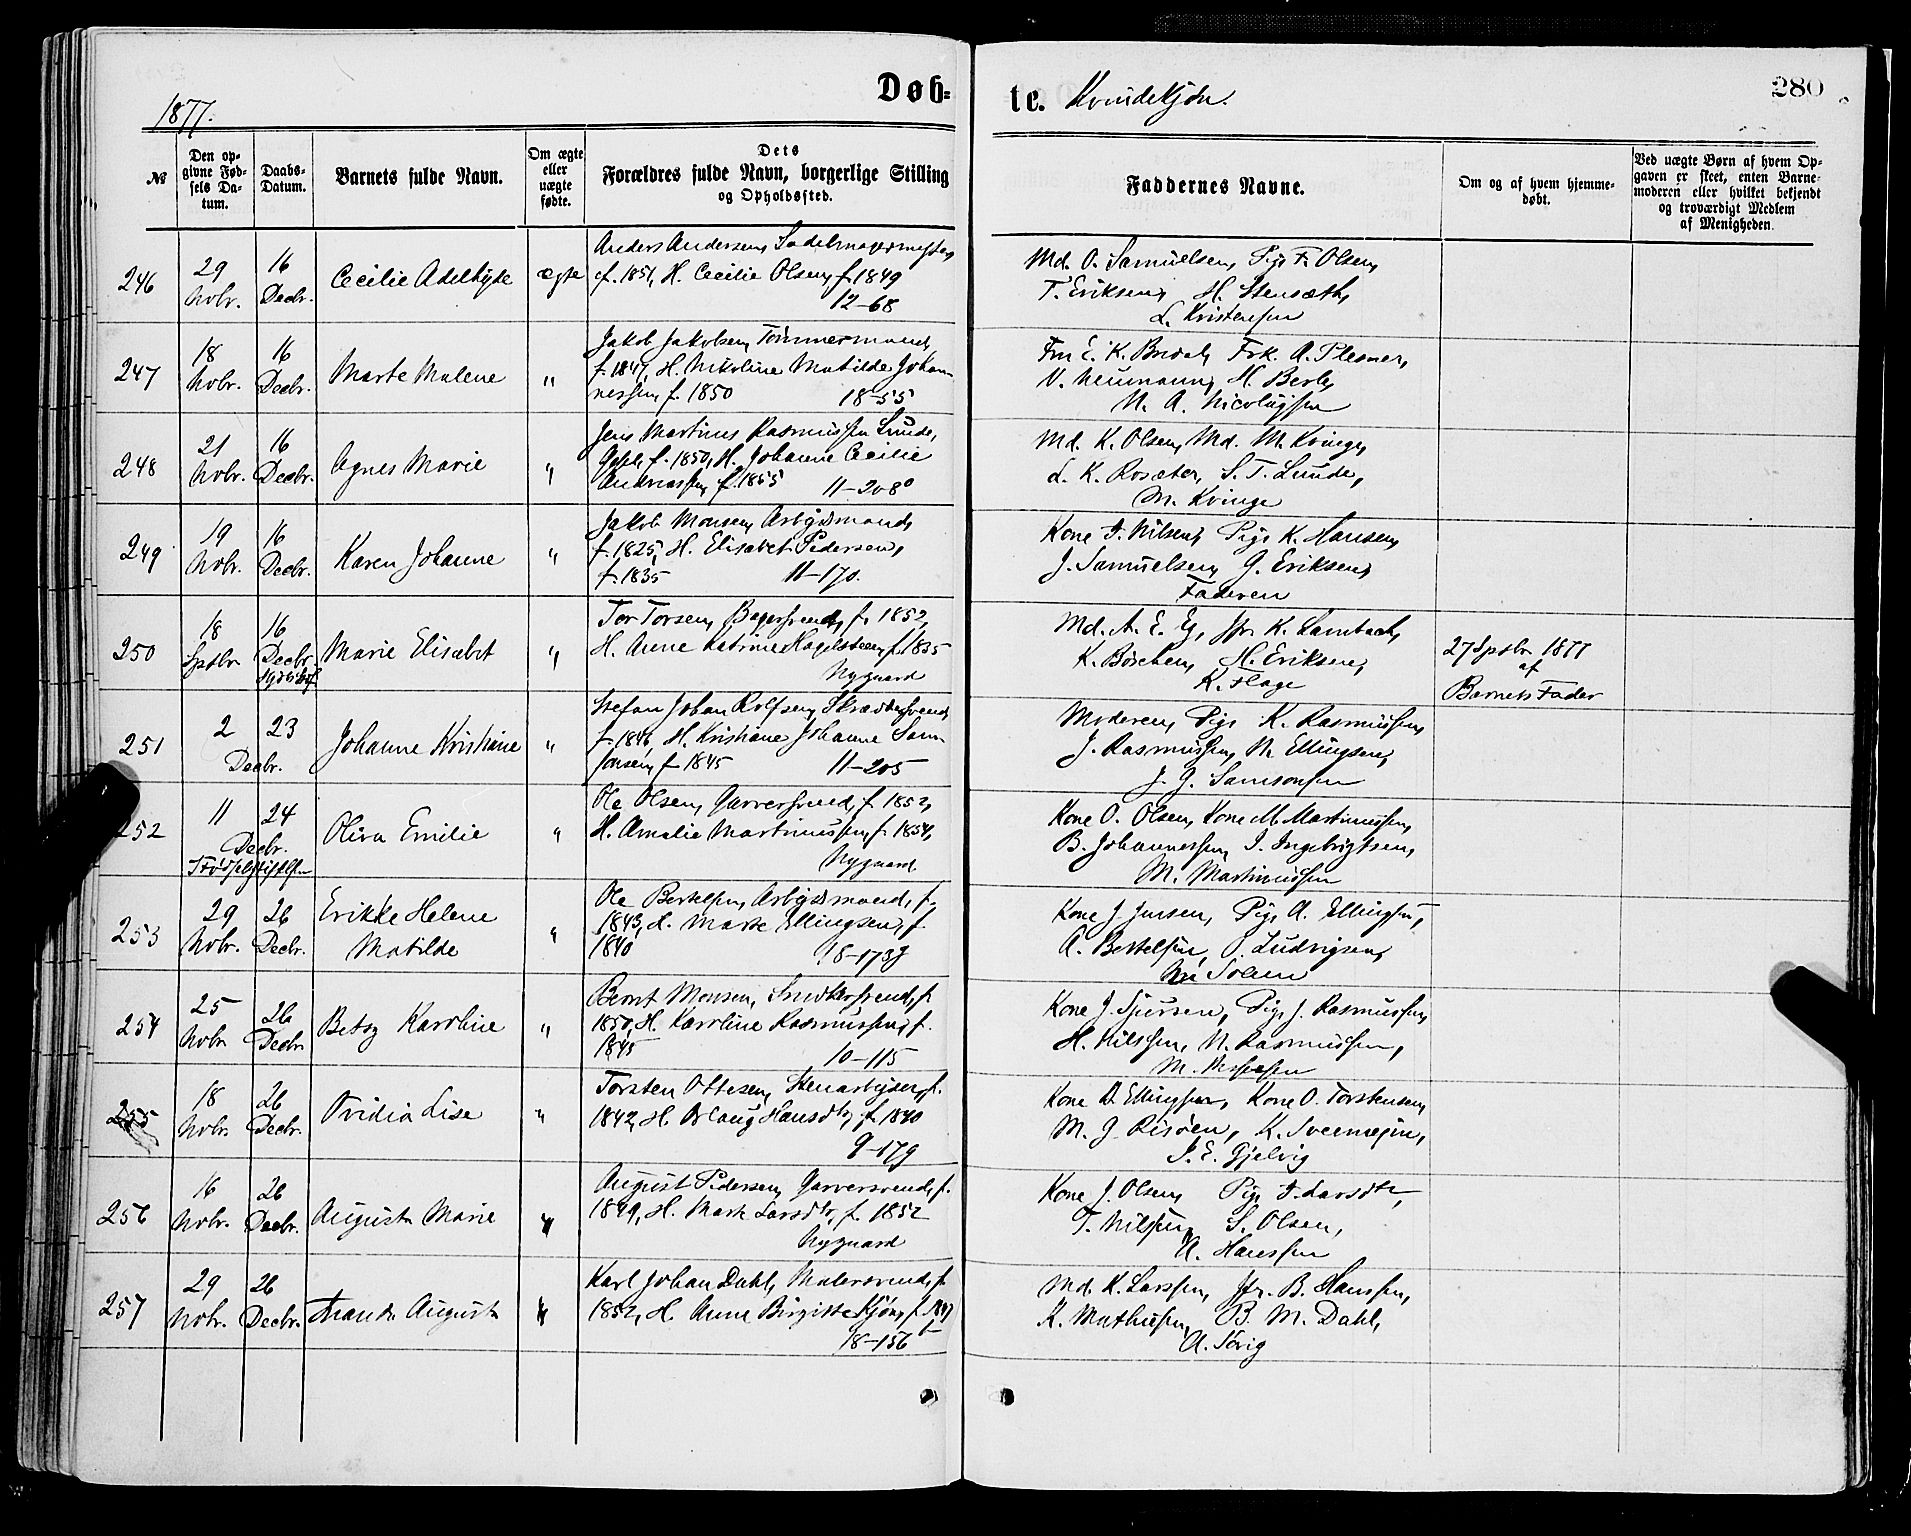 1877.
Døb-
te. Kvindekjøn.
280
№
Den op-
givne Fød-
sels Da-
tum.
Daabs-
Datum.
Barnets fulde Navn.
Om ægte
eller
uægte
fødte.
Dets
Forældres fulde Navn, borgerlige Stilling
og Opholdssted.
Faddernes Navne.
Om og af hvem hjemme-
døbt.
Ved uægte Børn af hvem Op-
gaven er skeet, enten Barne-
moderen eller hvilket bekjendt
og troværdigt Medlem
af Menigheden.
246
29
Nobr.
16
Decbr.
Cecilie Adelhyde
ægte
Anders Andersen, Sadelmagermester
f. 1851, H. Cecilie Olsen, f. 1849
12-68
Md. O. Samuelsen, Pige F. Olsen,
T. Eriksen, H. Stensæth,
L. Kristensen
247
18
Nobr.
16
Decbr.
Marte Malene
"
Jakob Jakobsen, Tømmermand,
f. 1847, H. Nikoline Matilde Johan-
nessen, f. 1850 18-55
Fru E. K. Bredal, Frk. A. Plesner,
V. Neumann, H. Berle,
N. A. Nicolaysen
248
21
Nobr.
16
Decbr.
Agnes Marie
"
Jens Martinus Rasmussen Lunde,
f. 1850, H. Johanne Cecilie
Andreassen, f. 1855 11-208
Md. K. Olsen, Md. M. Kvinge,
L. K. Rosæter, S. T. Lunde,
M. Kvinge
249
19
Nobr.
16
Decbr.
Karen Johanne
"
Jakob Monsen, Arbejdsmand,
f. 1825, H. Elisabet Pedersen,
f. 1835 11-170.
Kone F. Nilsen, Pige K. Hansen,
J. Samuelsen, G. Eriksen,
Faderen
250
18
Sptbr.
16
Decbr.
Marie Elisabet
"
Tor Torsen, Bagersvend, f. 1852,
H. Anne Katrine Hagelsteen, f. 1835
Nygaard
Md. A. E. Eg, Jfr. K. Lambach,
K. Böschen, H. Eriksen,
K. Flage
27 Sptbr. 1877
af
Barnets Fader
251
2
23
Decbr.
Johanne Kristiane
"
Stefan Johan Rolfsen, Skræddersvend,
f. 1846, H. Kristiane Johanne Sam-
sonsen, f. 1845 11-205
Moderen, Pige K. Rasmussen,
J. Rasmussen, M. Ellingsen,
J. G. Samsonsen
252
11
24
Decbr.
Oliva Emilie
"
Ole Olsen, Garversvend, f. 1852,
H. Amalie Martinussen, f. 1854,
Nygaard
Kone O. Olsen, Kone M. Martinussen,
B. Johannessen, I. Ingebrigtsen,
M. Martinussen
253
29
Nobr.
26
Decbr.
Erikke Helene
Matilde
"
Ole Bertelsen, Arbejdsmand, f.
1843, H. Marte Ellingsen, f.
1840
Kone J. Jensen, Pige A. Ellingsen,
A. Bertelsen, O. Ludvigsen,
254
25
Nobr.
26
Decbr.
Betsy Karoline
"
Bernt Monsen, Snedkersvend, f.
1850, H. Karoline Rasmussen, f.
1845 10-115
Kone J. Sjursen, Pige J. Rasmussen,
H. Nilssen, N. Rasmussen,
255
18
Nobr.
26
Decbr.
Ovidia Lise
"
Torsten Ottesen, Stenarbejder, f.
1842, H. Oslaug Hansdtr, f. 1840
9-179
Kone D. Ellingsen, Kone O. Torstensen,
M. J. Risøen,
I. E. Gjelvig
256
16
Nobr.
26
Decbr.
Augusta Marie
"
August Pedersen, Garversvend, f.
1849, H. Marte Larsdtr, f. 1852
Nygaard
Kone J. Olsen, Pige F. Larsdtr,
T. Nilsen, S. Olsen,
A. Hanssen
257
29
Nobr.
26
Decbr.
Augusta
"
Karl Johan Dahl, Malersvend, f.
1852, H. Anne Birgitte Kjøn, f. 1847
18-156
Md. K. Larssen, Jfr. B. Hanssen,
K. Mathiesen, B. M. Dahl,